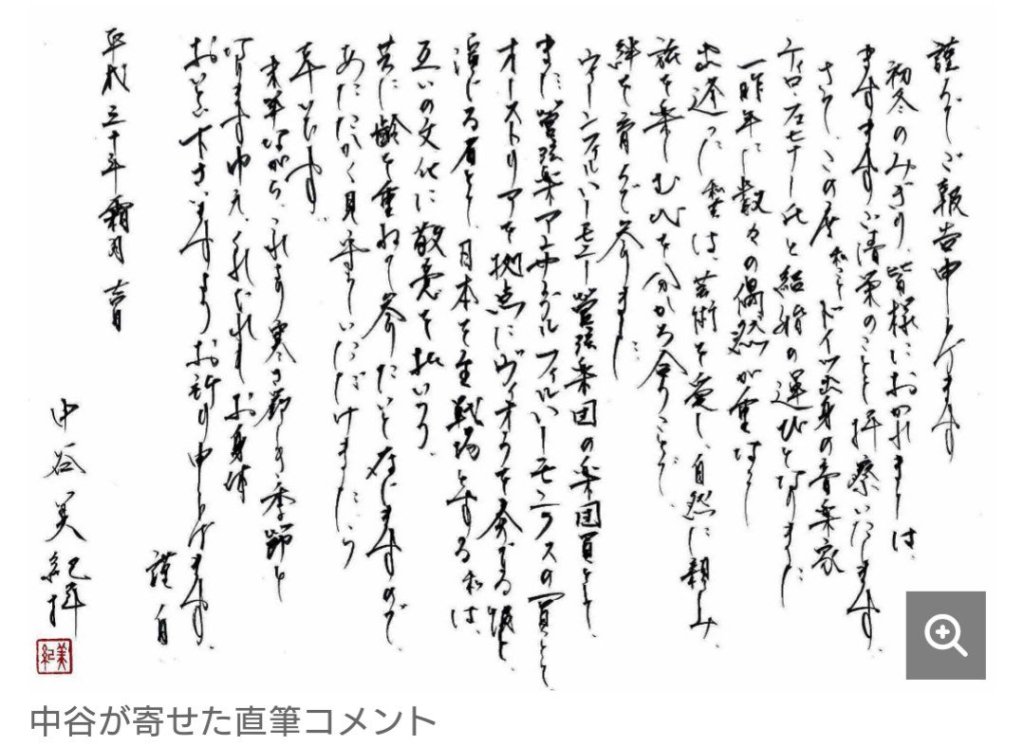 謹んでご報告申し上げます
初冬のみぎり、皆様におかれましては、
ますますご清栄のことと拝察いたします。
さて、この度 私こと ドイツ出身の音楽家
ティロ・フェヒナー氏と結婚の運びとなりました
一昨年に数々の偶然が重なり
出逢った私たちは、芸術を愛し、自然に親しみ
旅を楽しむ心を分かち合うことで、
絆を育んで参りました。
ウィーンフィルハーモニー管弦楽団の楽団員として、
また、管弦楽アンサンブル フィルハーモニクスの一員として
オーストリアを拠点にヴィオラを奏でる彼と、
演じる者として、日本を主戦場とする私は、
互いの文化に敬意を払いつつ
共に齢を重ねて参りたいと存じますので、
あたたかく見守っていただけましたら
幸いです。
末筆ながら、これより寒さ厳しい季節と
なりますゆえ、くれぐれも お身体
おいといくださいますようお祈り申し上げます。
謹白
平成三十年霜月吉日
中谷美紀拝
美紀
中谷が寄せた直筆コメント